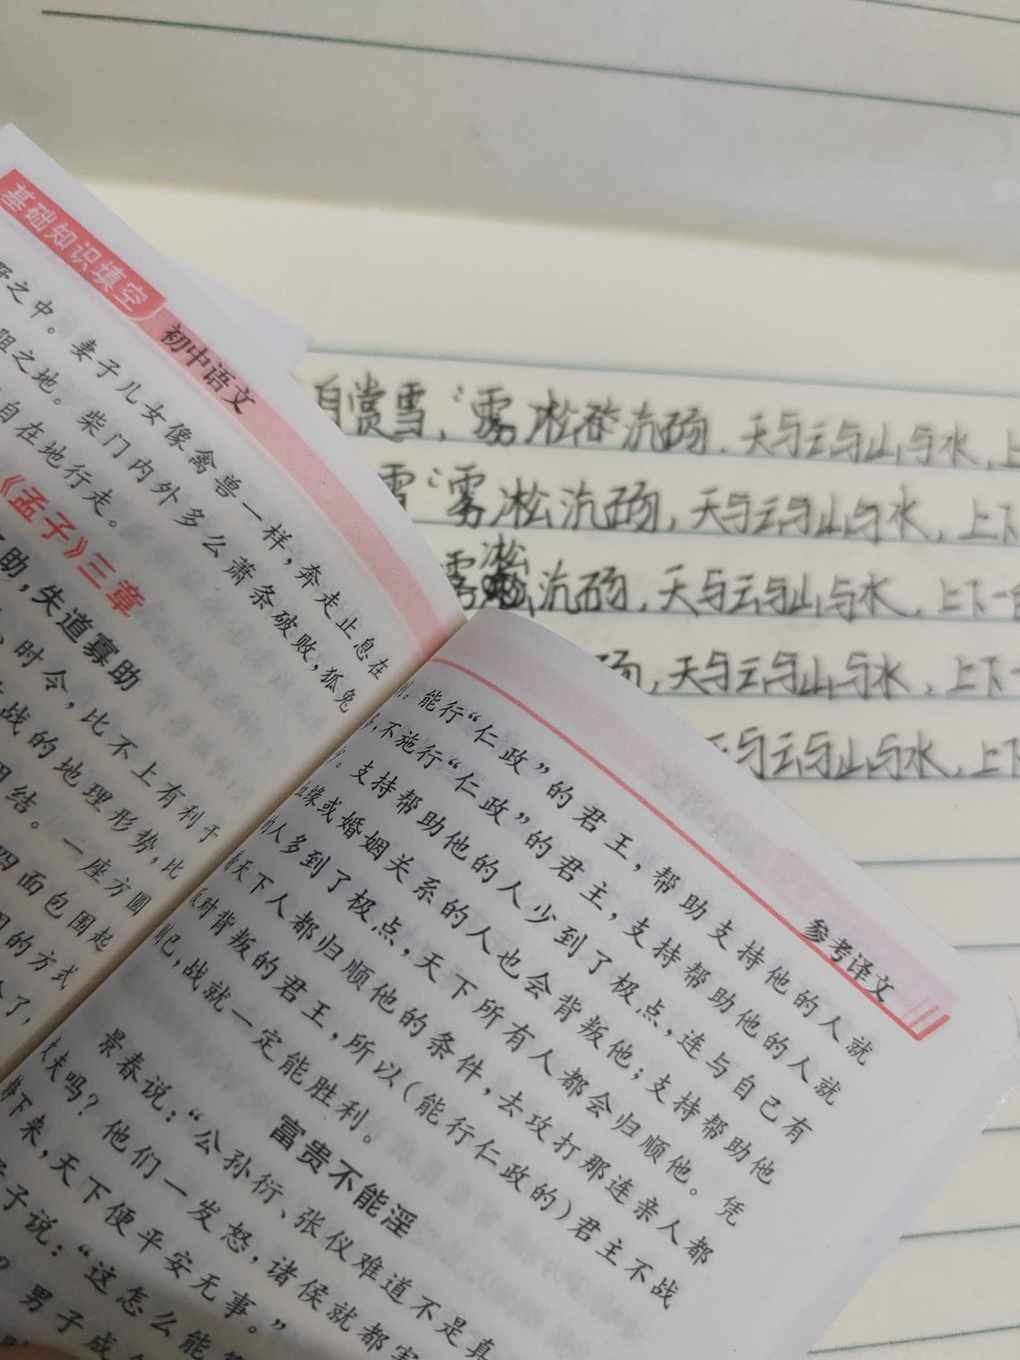 基础知识填空
初中语文
野之中。妻子儿女像禽兽一样,奔走止息在
阻之地。柴门内外多么萧条破败,狐兔
自在地行走。
《孟子》三章
助,失道寡助
时令,比不上有利于
战的地理形势,比
团结。一座方圆
四面包围起
的方式
了,
参考译文
能行“仁政”的君王,帮助支持他的人就
不施行“仁政”的君主,支持帮助他的人就
支持帮助他的人少到了极点,连与自己有
血缘或婚姻关系的人也会背叛他;支持帮助他
的人多到了极点,天下所有人都会归顺他。凭
天下人都归顺他的条件,去攻打那连亲人都
背叛的君王,所以(能行仁政的)君主不战
则已,战就一定能胜利。
富贵不能淫
景春说:“公孙衍、张仪难道不是真
丈夫吗?他们一发怒,诸侯就都害
下来,天下便平安无事。”
子说:“这怎么能
男子成
自赏雪,雾凇沆砀,天与云与山与水,上
雪 雾凇沆砀,天与云与山与水,上下
雾凇沆砀,天与云与山与水,上下一
砀,天与云与山与水,上下一
与云与山与水,上下